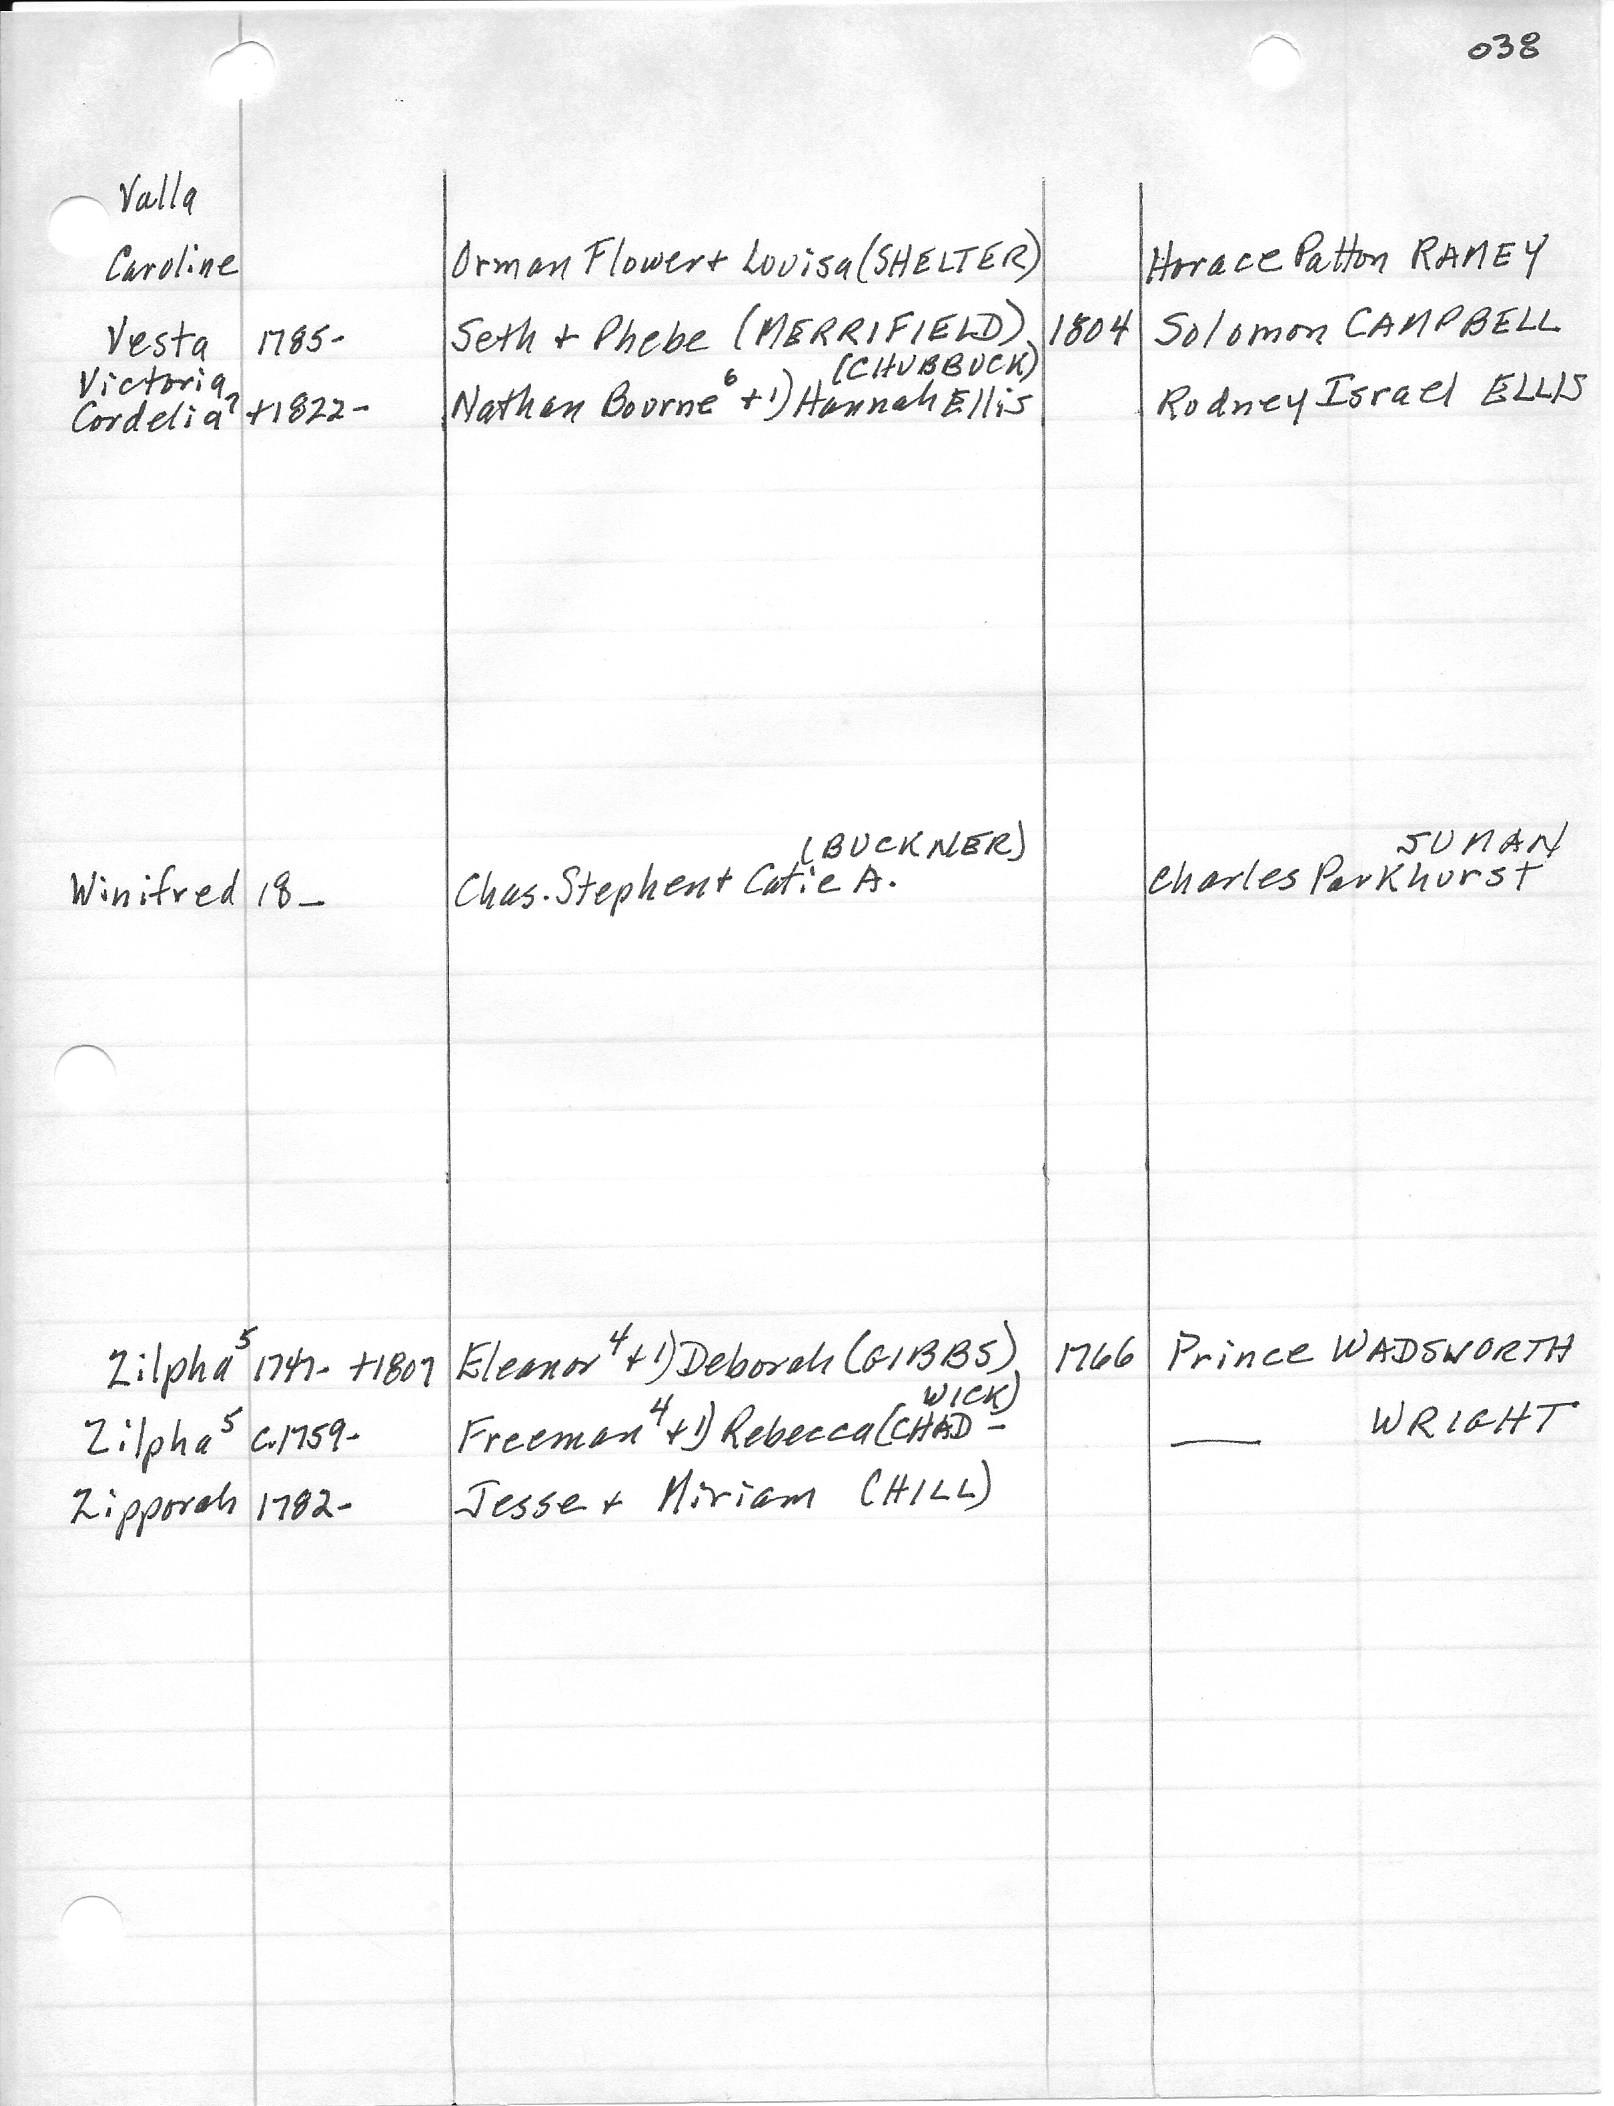 038
Valla
Caroline Orman Flower + Louisa (SHELTER) Horace Patton RAMEY
Vesta 1785- Seth + Phebe (MERRIFIELD) 1804 Solomon CAMPBELL
Victoria (CHUBBUCK)
Cordelia⁷ +1822- Nathan Bourne⁶ + 1) Hannah Ellis Rodney Israel ELLIS
(BUCKNER) JUMAN
Winifred 18_ Chas. Stephen + Catie A. Charles Parkhurst
Zilpha⁵ 1747- +1807 Eleanor⁴ + 1) Deborah (GIBBS) 1766 Prince WADSWORTH
WICK)
Zilpha⁵ c.1759- Freeman⁴ + 1) Rebecca (CHAD- ___ WRIGHT
Zipporah 1782- Jesse + Miriam (HILL)